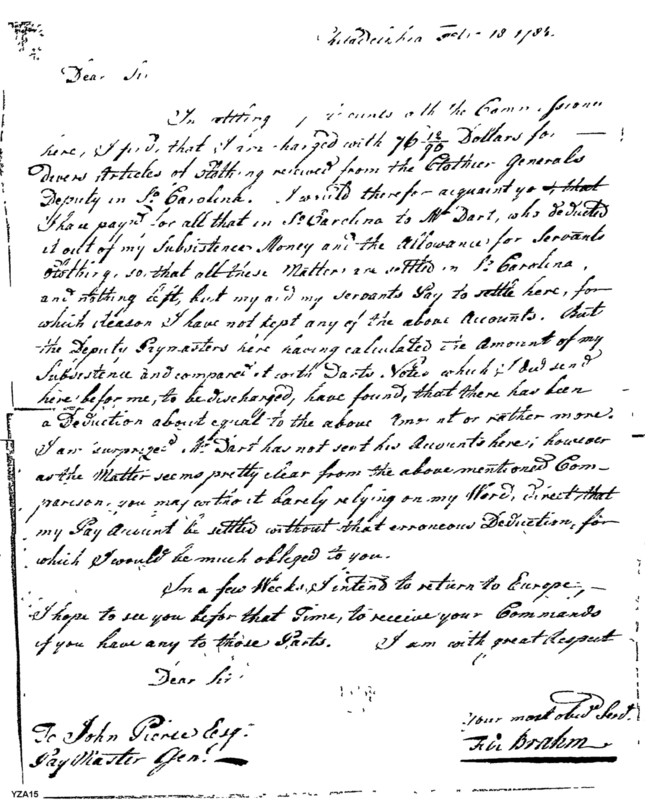 Philadelphia Feb. 13 1784.
Dear Sir
In settling accounts with the Commissioner
here, I find, that I am charged with 76 12/90 Dollars for
divers Articles of Clothing received from the Clothier Generals
Deputy in So. Carolina. I would therefor acquaint you, that
I have payd for all that in So. Carolina to Mr Dart, who deducted
it out of my Subsistence Money and the Allowance for Servants
Clothing, so, that all these Matters are settled in So. Carolina,
and nothing left, but my and my Servants Pay to settle here, for
which Reason I have not kept any of the above Accounts. But
the Deputy Paymasters here having calculated the Amount of my
Subsistence and compared it with Darts Notes which I send
here before me, to be discharged, have found, that there has been
a Deduction about equal to the above Amount or rather more.
I am surprized Mr Dart has not sent his Accounts here; however
as the Matter seems pretty clear from the above mentioned Com-
parison, you may without barely relying on my Word, direct, that
my Pay Account be settled without that erroneous Deduction, for
which I would be much obliged to you.
In a few Weeks, I intend to return to Europe;
I hope to see you befor that Time, to receive your Commands
if you have any to those Parts. I am with great Respect
Dear Sir
your most obedt Servt.
To John Pierce Esqr
Pay Master Genl.
Brahm
YZA15